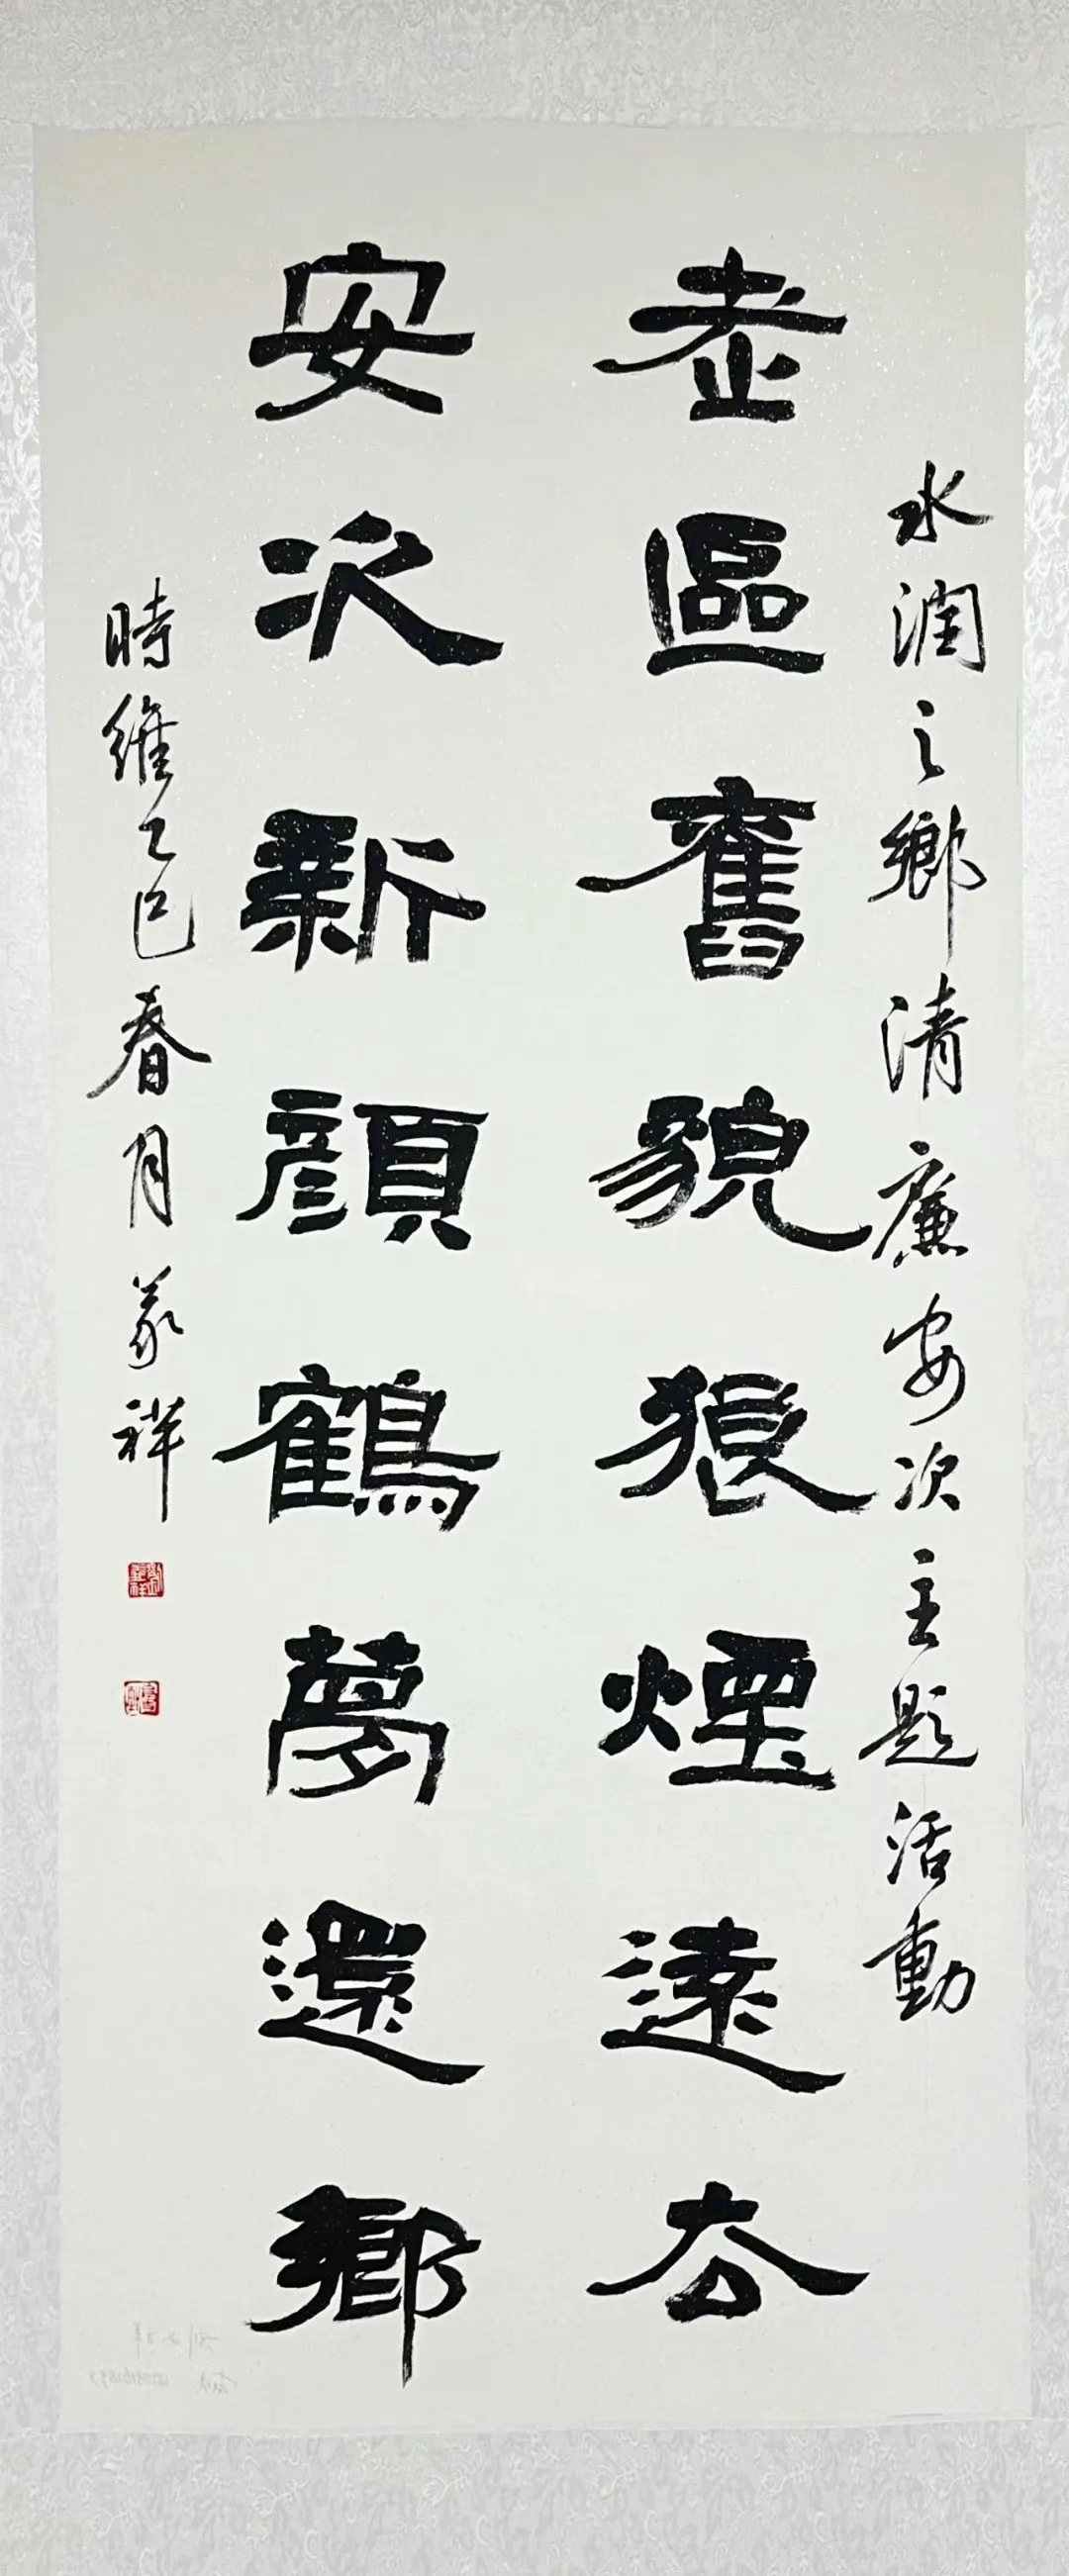 水润之鄉清廉安次主题活動
老區舊貌狼煙遠去
安次新顏鶴夢還鄉
時維乙巳春月義祥